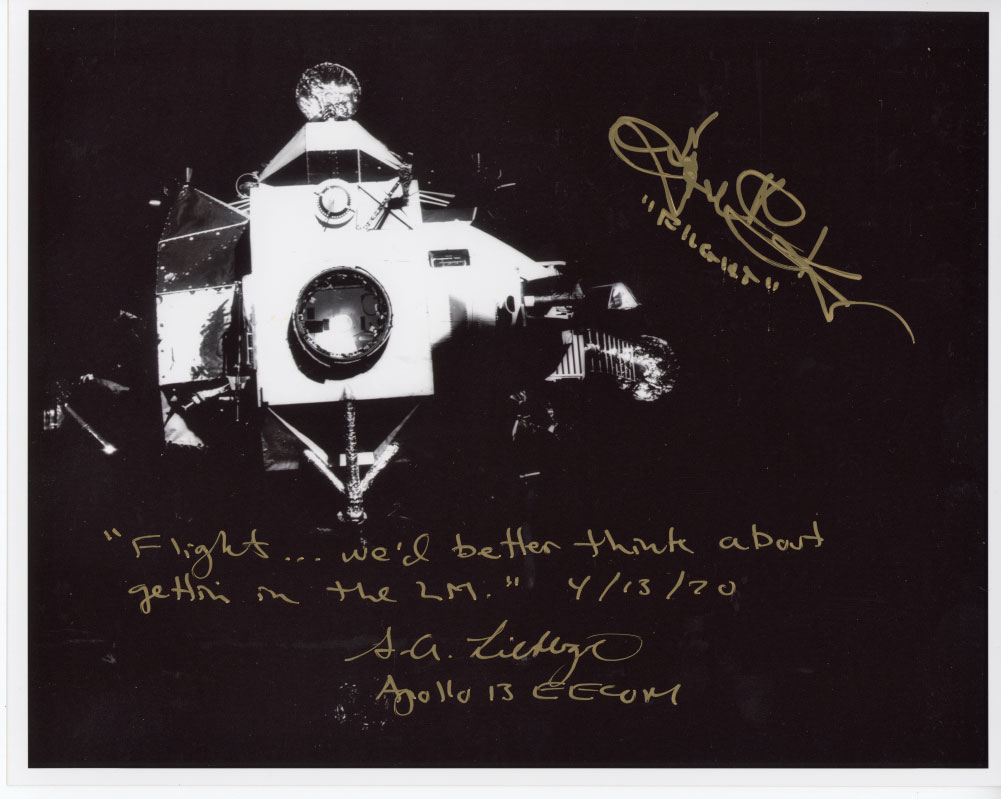 "FLIGHT"
"Flight... we'd better think about
gettin' in the LM." 4/13/70
S.A. Liebergot
Apollo 13 EECOM